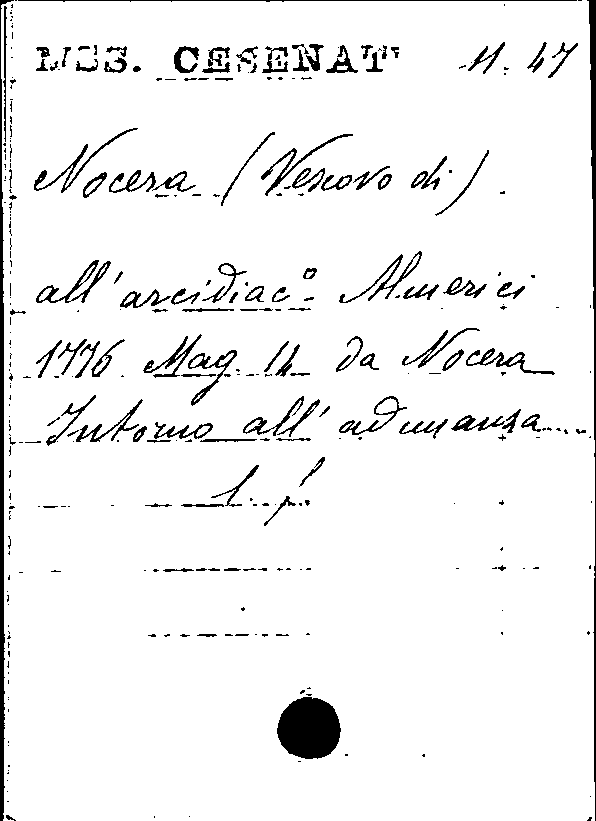 MSS. CESENATI 11. 47
Nocera (Vescovo di)
all'arcidiac.º Almerici
1776 Mag. 14 da Nocera
Intorno all'adunanza....